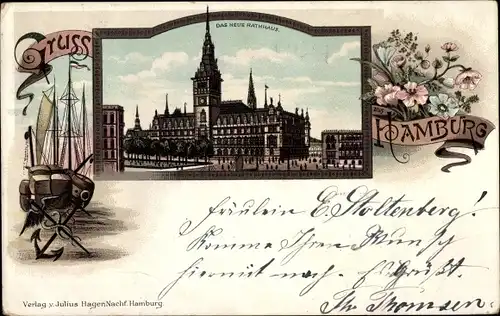 DAS NEUE RATHHAUS.
GRUSS
HAMBURG
Fräulein E. Stoltenberg!
Komme Ihrem Wunsch
hiermit nach. Grüßt.
Thomsen.
Verlag v. Julius Hagen Nachf. Hamburg.